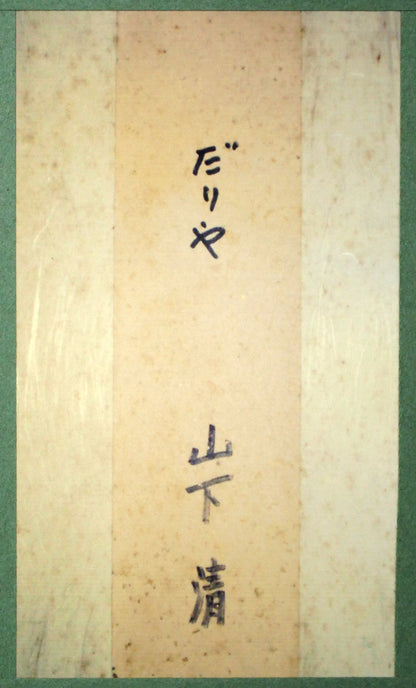 だりや
山下清